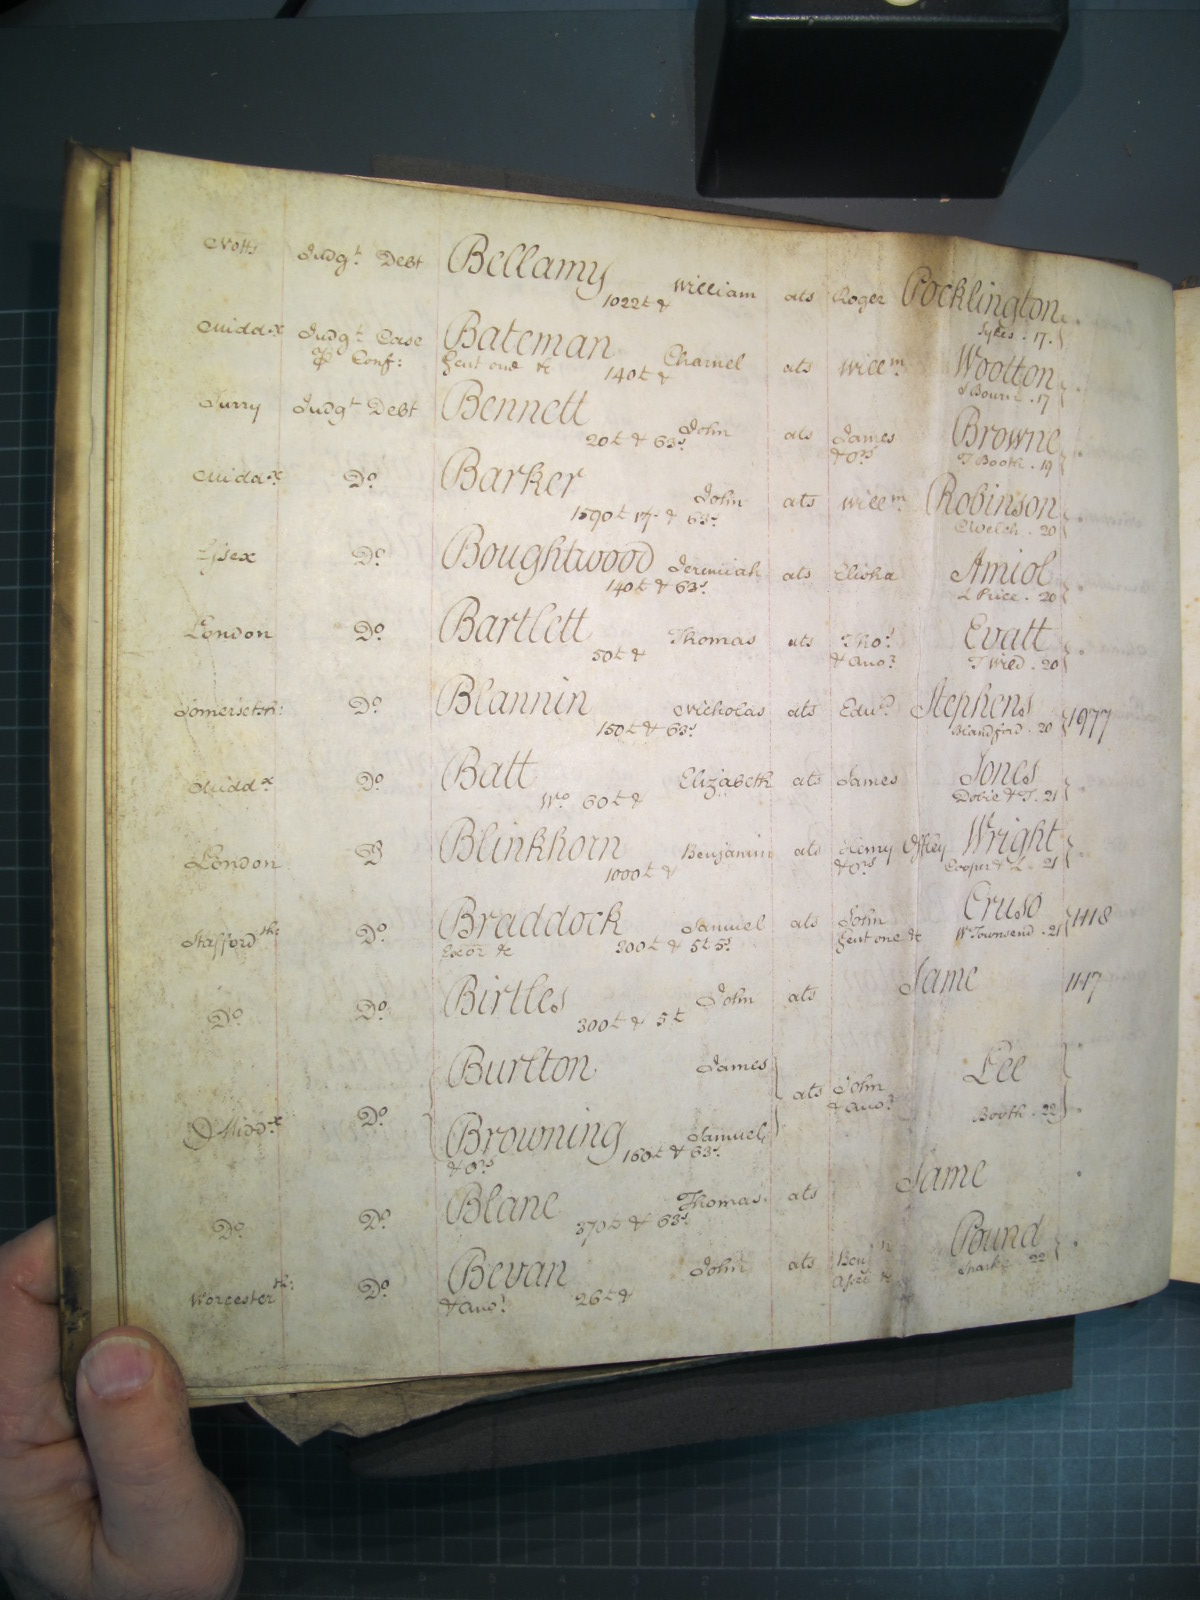 Notts Judgt. Debt Bellamy William ats Roger Pocklington
1022£ & Sykes . 17.
Midd.x Judgt. Case Bateman Charnel ats Willm. Wootton
Conf: Gent one &c 140£ & J Bourn . 17
Surry Judgt. Debt Bennett John ats James Browne
20£ & 63s. & ors. T Booth . 19
Midd.x Do. Barker John ats Willm. Robinson
1590£ 17s. & 63s. Welch . 20
Essex Do. Boughtwood Jeremiah ats Elisha Amiol
140£ & 63s. Price . 20
London Do. Bartlett Thomas ats Thos. Evatt
50£ & & Anor. T Wied . 20
Somersetsh: Do. Blannin Nicholas ats Edwd. Stephens 1977
150£ & 63s. Blandford . 20
Midd.x Do. Batt Elizabeth ats James Jones
Wo. 60£ & Dobie & T. 21
London D Blinkhorn Benjamin ats Henry Offley Wright
1000£ & & ors. Cooper & L . 21
Staffordsh: Do. Braddock Samuel ats John Cruso 1118
Exor &c 300£ & 5£ 5s. Gent one &c W Townsend . 21
Do. Do. Birtles John ats Same 1117
300£ & 5£
Burlton James Lee
Midd.x Do. ats John
& Anor. Booth . 22
Browning Samuel
& ors. 160£ & 63s.
Do. Do. Blane Thomas ats Same
370£ & 63s.
Worcestersh: Do. Bevan John ats Benjn. Pound
& Anor. 26£ & 22